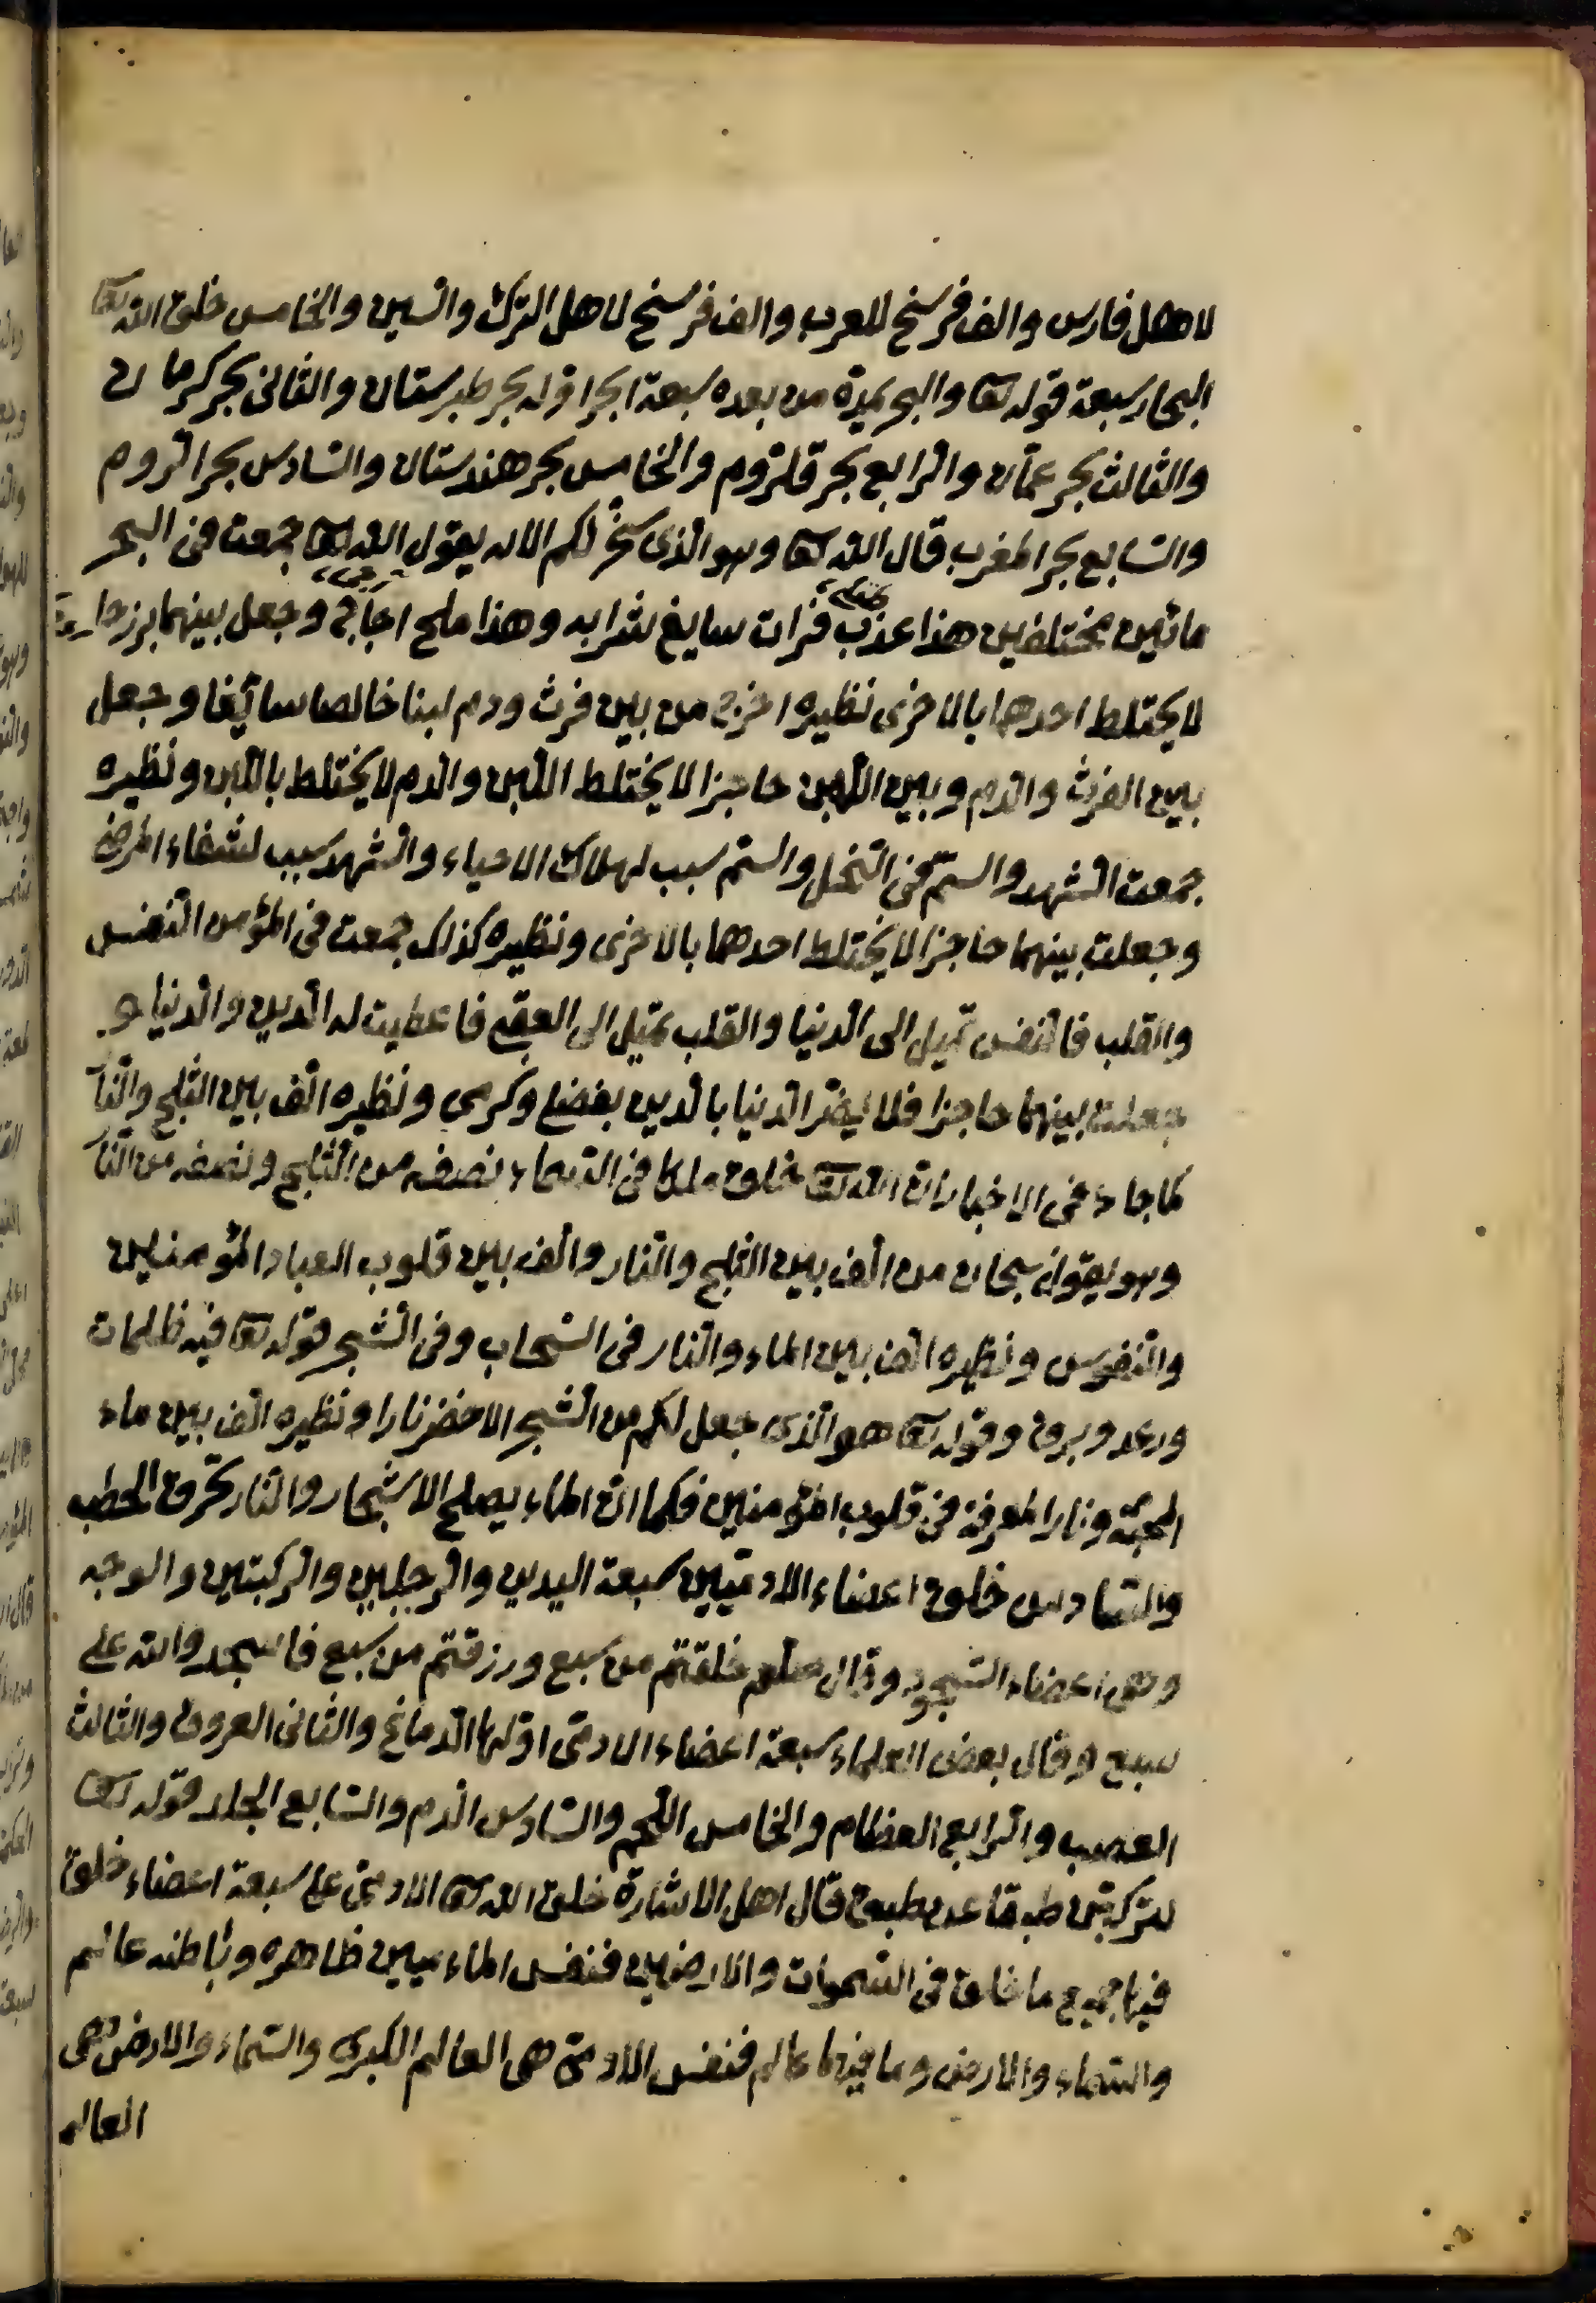 لاهل فارس والف فرسخ للعرب والف فرسخ لاهل الترك والسين والخامس خلق الله تعا
البحار سبعة قوله تعا والبحر يمدّه من بعده سبعة ابحر اوّله بحر طبرستان والثانى بحر كرمان
والثالث بحر عمّان والرّابع بحر قلزوم والخامس بحر هندستان والسّادس بحر الرّوم
والسّابع بحر المغرب قال الله تعا وهو الّذى سخّر لكم الاٰيه يقول الله تعا جمعت فى البحر
مائين مختلفين هذا عذب فرات سايغ شرابه وهذا ملح اجاج وجعل بينهما برزحا
لا يختلط احدها بالاخرى نظيره اخرج من بين فرث ودم لبنا خالصا سائغا وجعل
بين الفرث والدّم وبين اللّبن حاجزا لا يختلط اللّبن والدّم لا يختلط باللّبن ونظيره
جمعت الشّهد والسّمّ فى النّحل والسّم سبب لهلاك الاحياء والشّهد سبب لشفاء المرضى
وجعلت بينهما حاجزا لا يختلط احدهما بالاخرى ونظيره كذلك جمعت فى المؤمن النّفس
والقلب فالنّفس تميل الى الدّنيا والقلب يميل الى العقبى فاعطيت له الدّين والدّنيا و
جعلت بينهما حاجزا فلا يضرّ الدّنيا بالدّين بفضلى وكرمى ونظيره الّف بين الثلج والنّا
كما جاء فى الاخبار انّ الله تعا خلق ملكا فى السّماء نصفه من الثّلج ونصفه من النّا
وهو يقول سبحان من الّف بين الثلج والنّار والّف بين قلوب العباد المؤمنين
والنّفوس ونظيره الّف بين الماء والنّار فى السّحاب وفى الشّجر قوله تعا فيه ظلمات
ورعد وبرق وقوله تعا هو الّذى جعل لكم من الشّجر الاخضر نارا ونظيره الّف بين ماء
المحبّة ونار المعرفة فى قلوب المؤمنين فكما انّ الماء يصلح الاشجار والنّار تحرق الحطب
والسّادس خلق اعضاء الادميّين سبعة اليدين والرّجلين والرّكبتين والوجه
وهى اعضاء السّجود وقال صلعم خلقتم من سبع ورزقتم من سبع فاسجدوا لله على
سبع وقال بعض العلماء سبعة اعضاء الادمى اوّلها الدّماغ والثانى العروق والثالث
العصب والرّابع العظام والخامس اللّحم والسّادس الدّم والسّابع الجلد قوله تعا
لتركبنّ طبقا عن طبق قال اهل الاشارة خلق الله تعا الادمىّ على سبعة اعضاء خلق
فيها جميع ما خلق فى السّموات والارضين فنفس ظاهره وباطنه عالم
والسّماء والارض وما فيها عالم فنفس الادمىّ هى العالم الكبرى والسّماء والارض هى
العالم